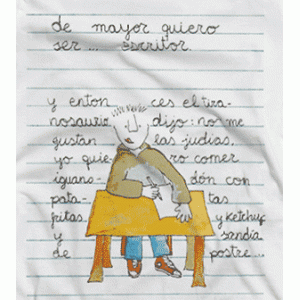 de mayor quiero
ser... escritor
y enton ces el tira-
nosaurio dijo: no me
gustan las judías,
yo quie- ro comer
iguano dón con
pata- tas
fritas, y Ketchup
y sandía
de postre...